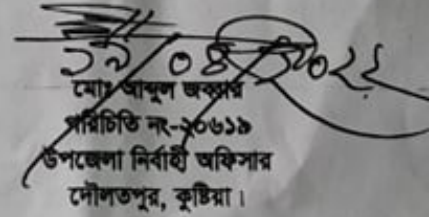 ১৯/০৪/২০২২
মোঃ আব্দুল জব্বার
পরিচিতি নং-২০৬১৯
উপজেলা নির্বাহী অফিসার
দৌলতপুর, কুষ্টিয়া।